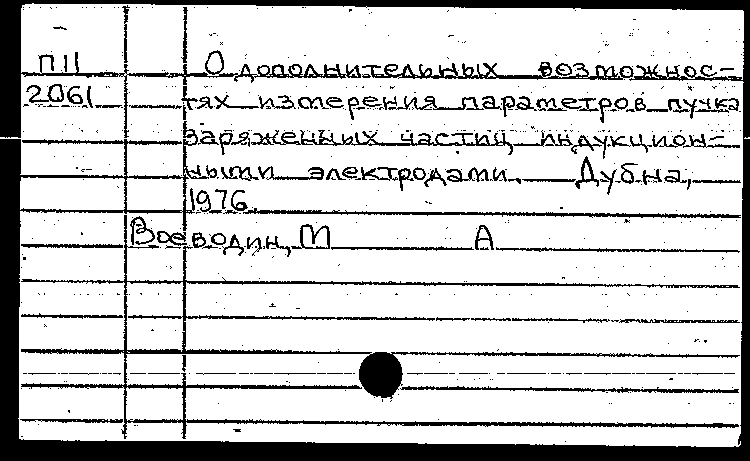 П11 О дополнительных возможнос-
2061 тях измерения параметров пучка
заряженных частиц индукцион-
ными электродами. Дубна,
1976.
Воеводин, М А